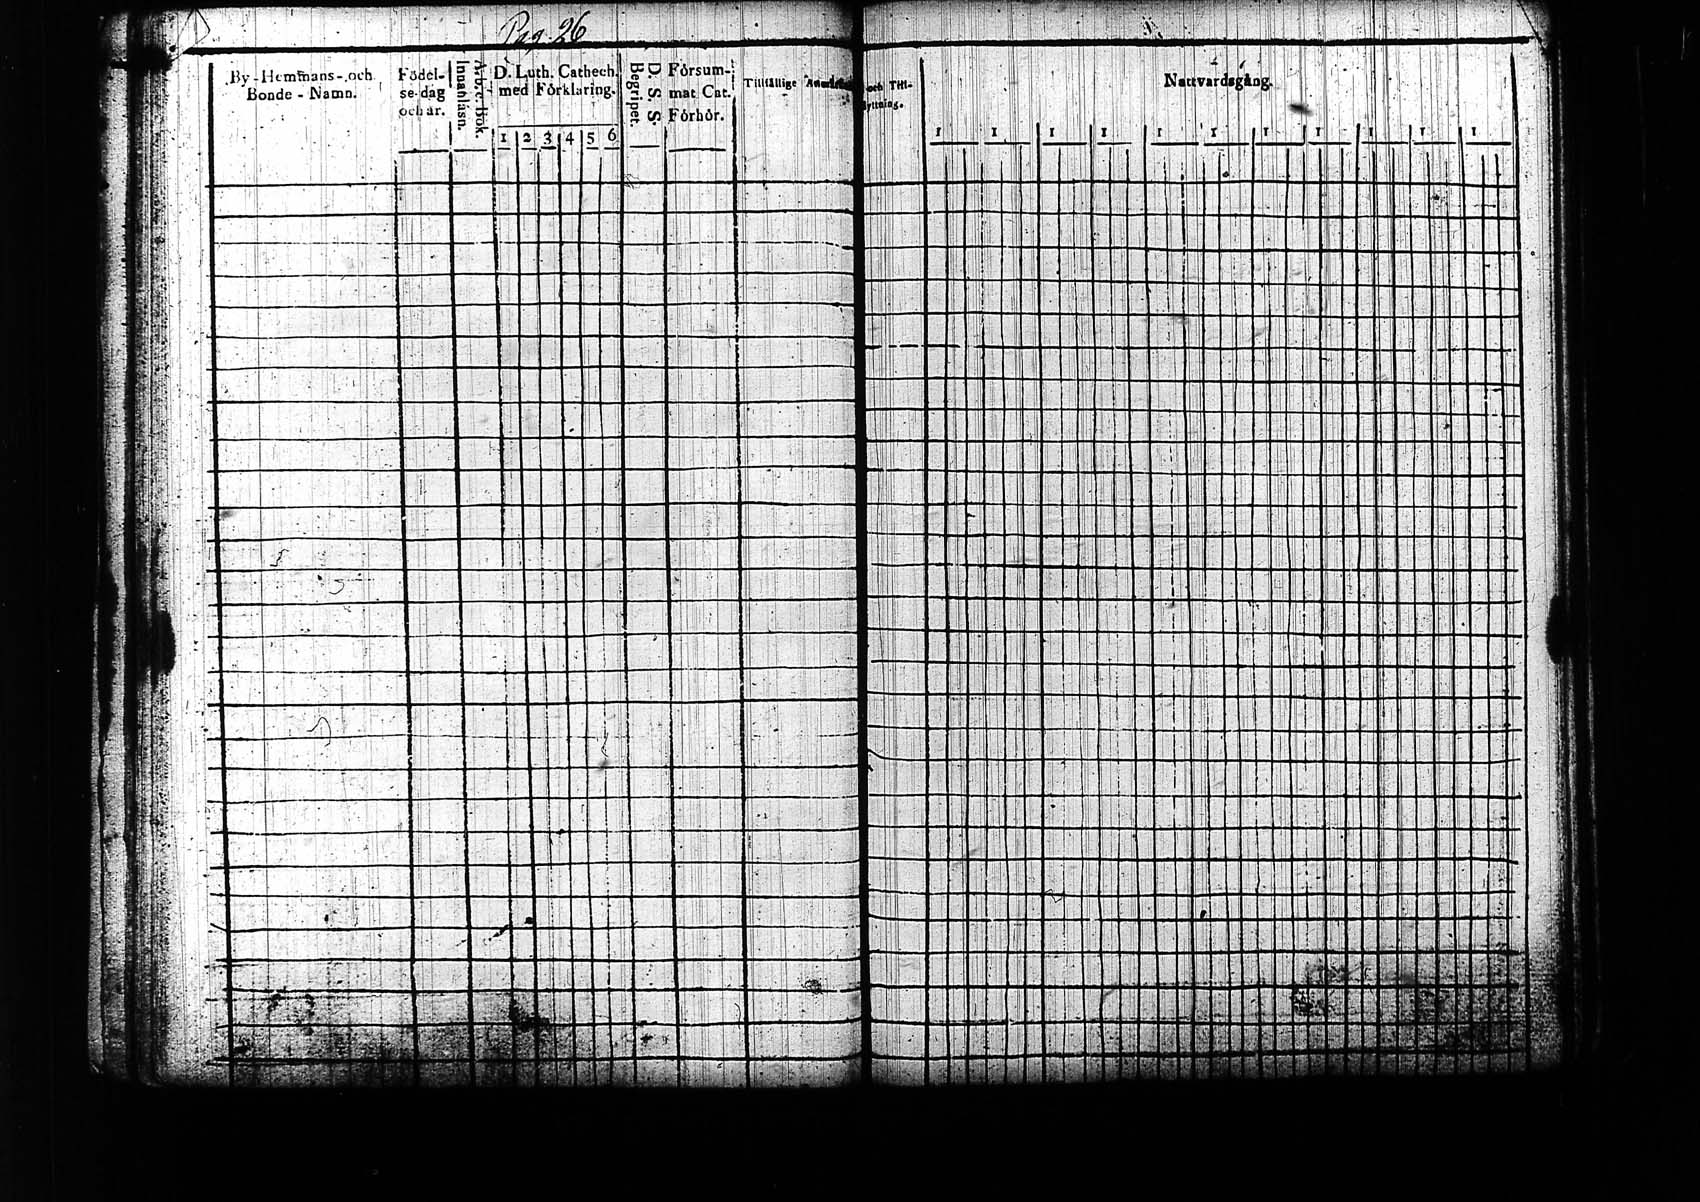 Pag. 26
By-Hemmans-och
Bonde-Namn.
Födel-
se-dag
och år.
Innanläsn.
A.b.c. Bok.
D. Luth. Cathech.
med Förklaring.
1 2 3 4 5 6
Begripet.
D. S. S.
Försum-
mat Cat.
Förhör.
Tillfällige
och Till-
flyttning.
Nattvardsgång.
1 1 1 1 1 1 1 1 1 1 1